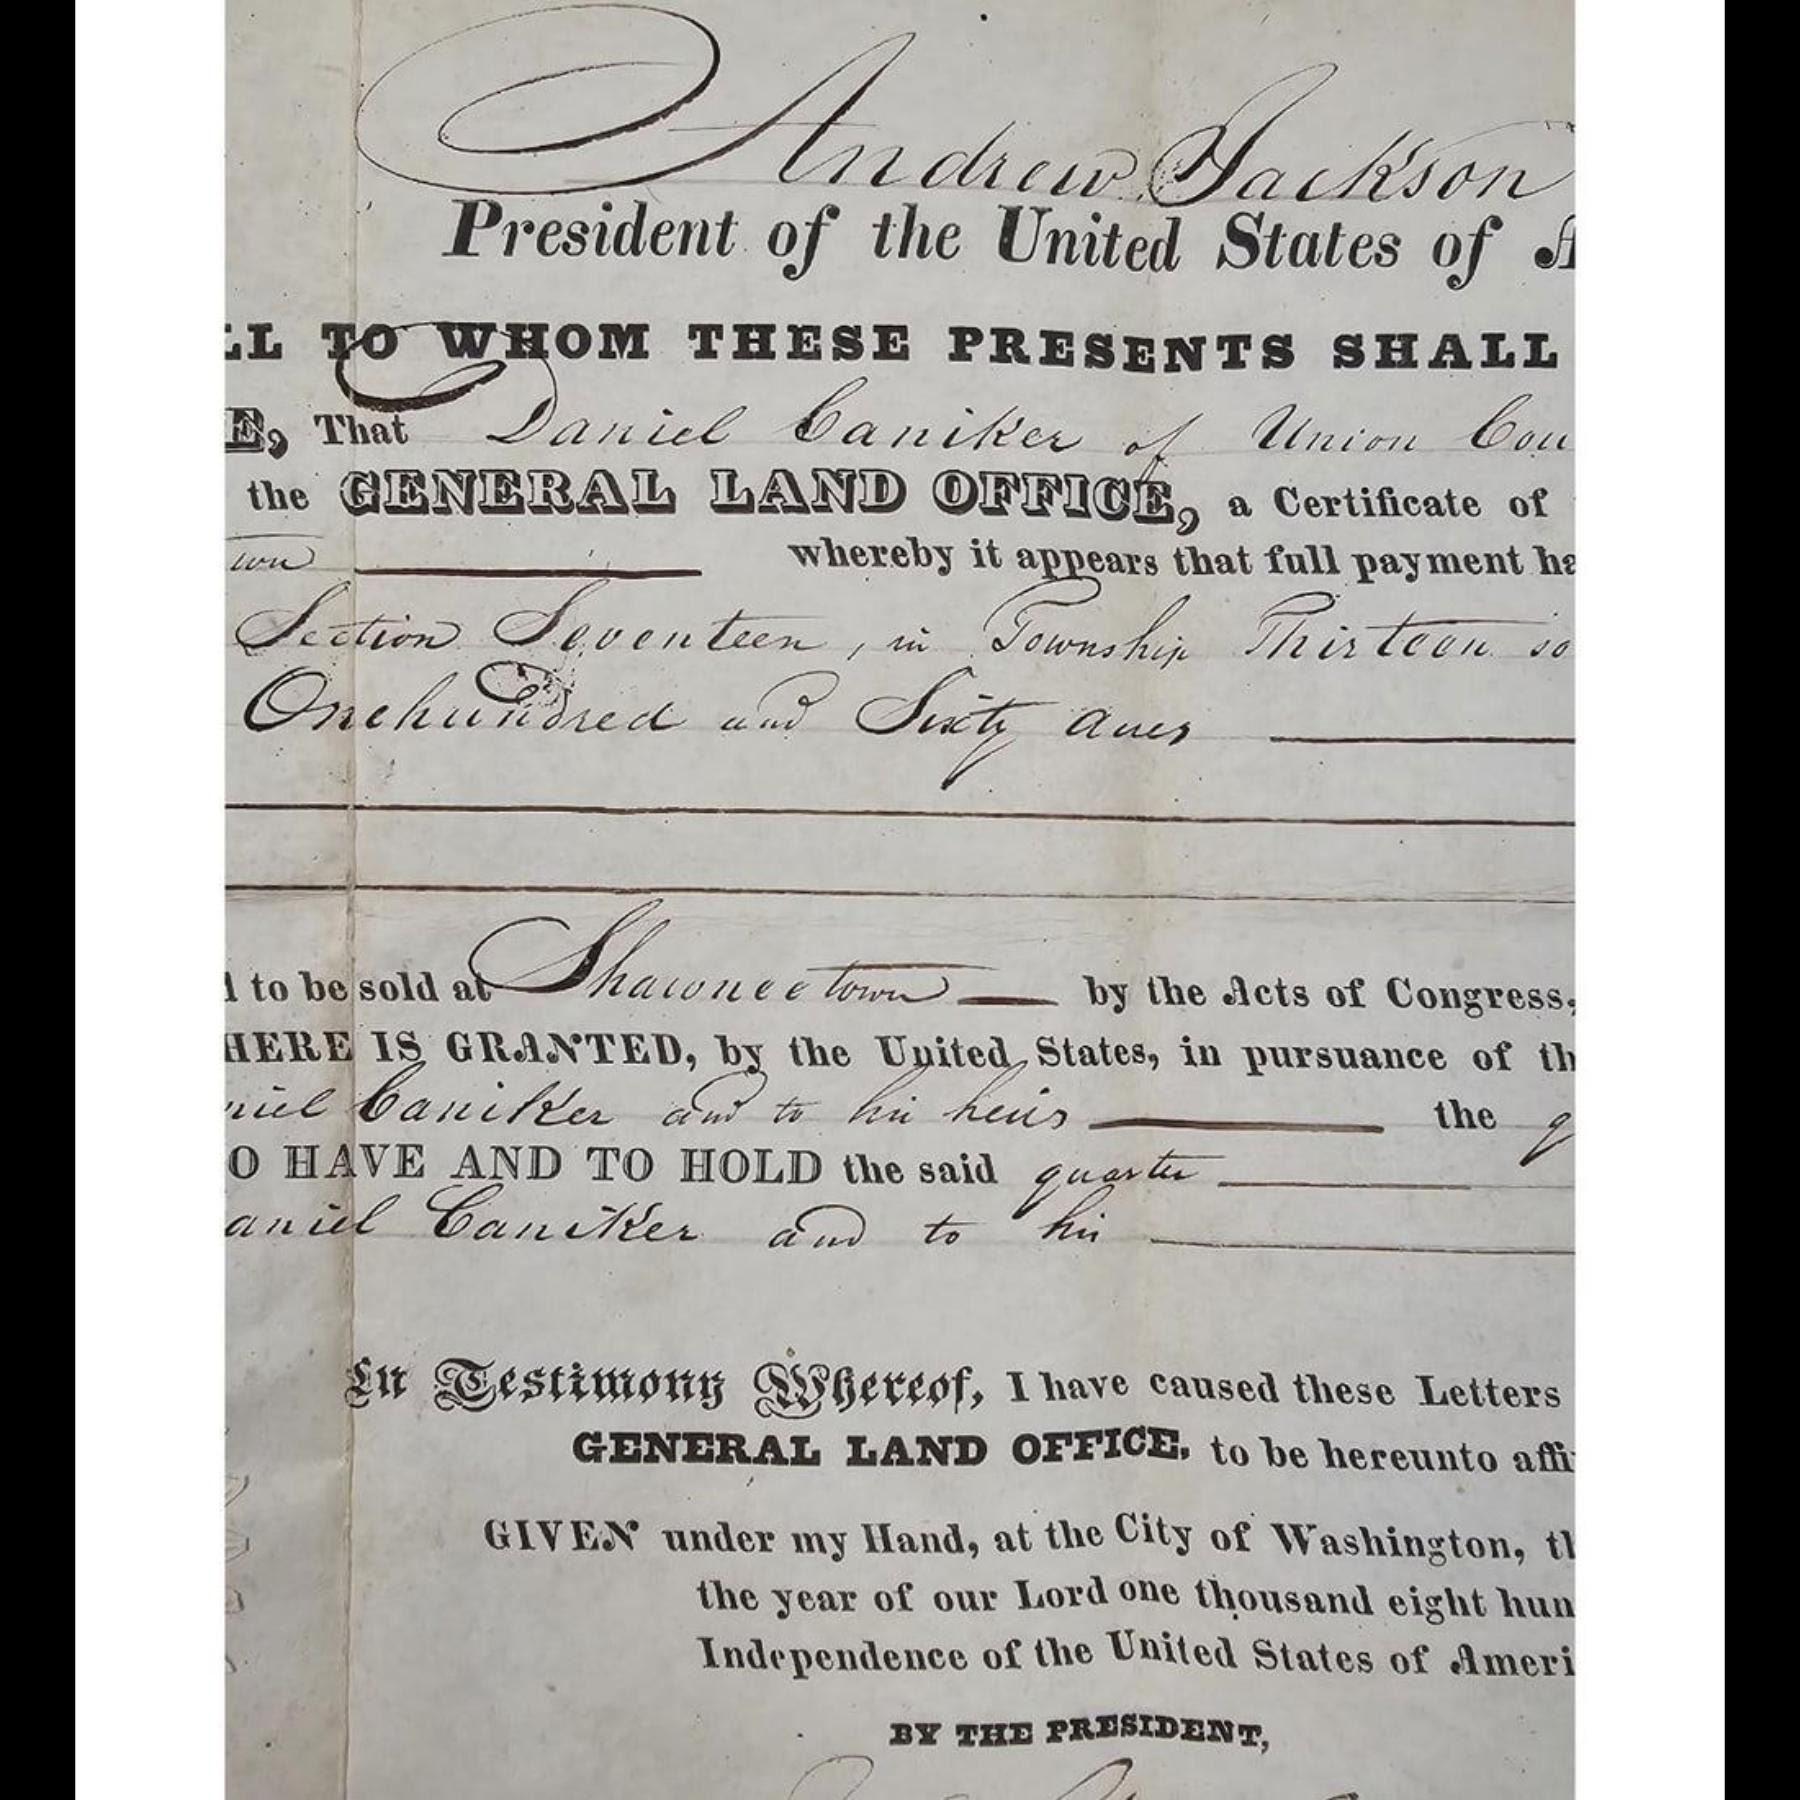 Andrew Jackson
President of the United States of A
LL TO WHOM THESE PRESENTS SHALL
E, That Daniel Caniker of Union Cou
the GENERAL LAND OFFICE, a Certificate of
town whereby it appears that full payment ha
Section Seventeen, in Township Thirteen so
Onehundred and Sixty acres
d to be sold at Shawneetown by the Acts of Congress,
HERE IS GRANTED, by the United States, in pursuance of th
niel Caniker and to his heirs the q
O HAVE AND TO HOLD the said quarter
aniel Caniker and to his
In Testimony Whereof, I have caused these Letters
GENERAL LAND OFFICE, to be hereunto affi
GIVEN under my Hand, at the City of Washington, th
the year of our Lord one thousand eight hun
Independence of the United States of Ameri
BY THE PRESIDENT,